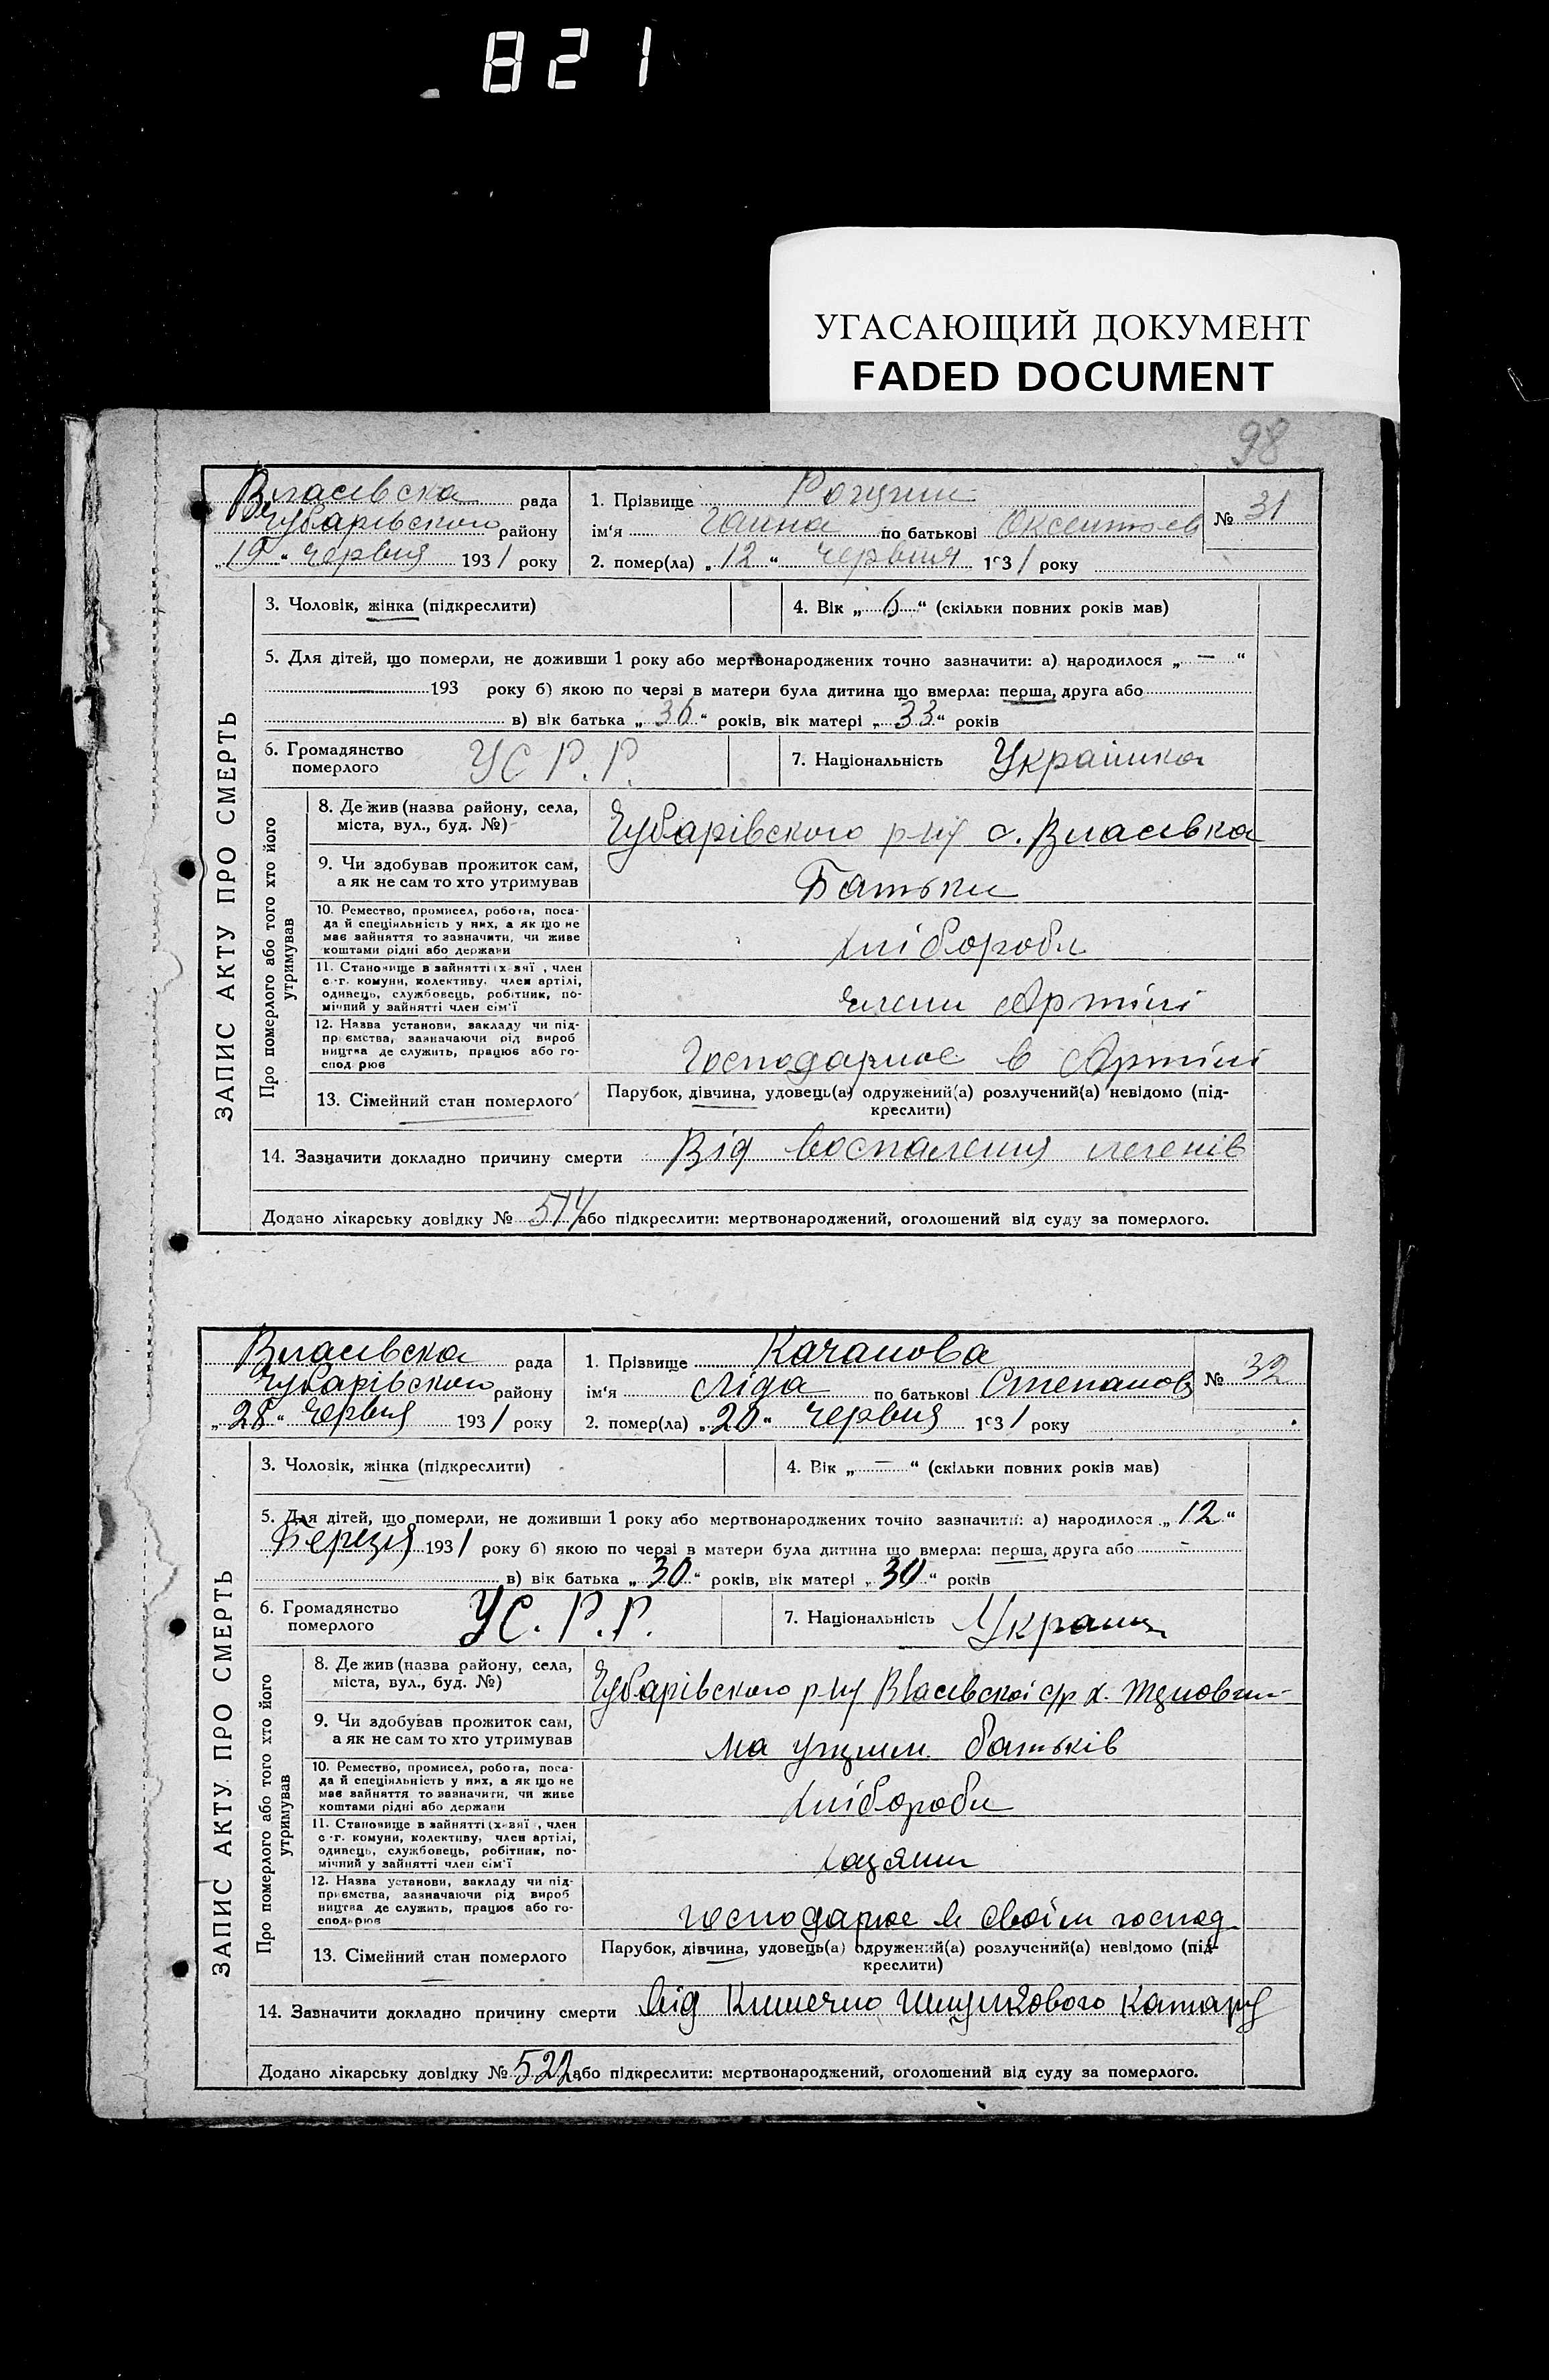 821
УГАСАЮЩИЙ ДОКУМЕНТ
FADED DOCUMENT
98
Власівска рада
Чубарівского району
„19“ Червня 1931 року
1. Прізвище
ім'я Ганна по батькові Оксентьев
2. помер(ла) „12“ червня 1931 року
№ 31
ЗАПИС АКТУ ПРО СМЕРТЬ
3. Чоловік, жінка (підкреслити)
4. Вік „6“ (скільки повних років мав)
5. Для дітей, що померли, не доживши 1 року або мертвонароджених точно зазначити: а) народилося „—“
193 року б) якою по черзі в матери була дитина що вмерла: перша, друга або
в) вік батька „36“ років, вік матері „33“ років
6. Громадянство померлого УС Р. Р.
7. Національність Українка
Про померлого або того хто його утримував
8. Де жив (назва району, села, міста, вул., буд. №) Чубарівского р-ну с. Власівка
9. Чи здобував прожиток сам, а як не сам то хто утримував Батьки
10. Ремество, промисел, робота, посада й спеціяльність у них, а як що не має зайняття то зазначити, чи живе коштами рідні або держави хлібороби
11. Становище в зайнятті (хазяї, член с.-г. комуни, колективу, член артілі, одинець, службовець, робітник, помічний у зайнятті член сім'ї Члени Артілі
12. Назва установи, закладу чи підприємства, зазначаючи рід виробництва де служить, працює або господарює Господарює в Артілі
13. Сімейний стан померлого
Парубок, дівчина, удовець(а) одружений(а) розлучений(а) невідомо (підкреслити)
14. Зазначити докладно причину смерти Від воспалення легенів
Додано лікарську довідку № 514 або підкреслити: мертвонароджений, оголошений від суду за померлого.
Власівска рада
Чубарівского району
„28“ Червня 1931 року
1. Прізвище Качанова
ім'я Ліда по батькові Степанов
2. помер(ла) „20“ Червня 1931 року
№ 32
ЗАПИС АКТУ ПРО СМЕРТЬ
3. Чоловік, жінка (підкреслити)
4. Вік „—“ (скільки повних років мав)
5. Для дітей, що померли, не доживши 1 року або мертвонароджених точно зазначити: а) народилося „12“
Березня 1931 року б) якою по черзі в матери була дитина що вмерла: перша, друга або -
в) вік батька „30“ років, вік матері „30“ років
6. Громадянство померлого УС. Р. Р.
7. Національність
Про померлого або того хто його утримував
8. Де жив (назва району, села, міста, вул., буд. №) Чубарівского р-ну Власівскої с/р х.
9. Чи здобував прожиток сам, а як не сам то хто утримував На утрим. батьків
10. Ремество, промисел, робота, посада й спеціяльність у них, а як що не має зайняття то зазначити, чи живе коштами рідні або держави хлібороби
11. Становище в зайнятті (хазяї, член с.-г. комуни, колективу, член артілі, одинець, службовець, робітник, помічний у зайнятті член сім'ї хазяїни
12. Назва установи, закладу чи підприємства, зазначаючи рід виробництва де служить, працює або господарює господарює в своїм господ
13. Сімейний стан померлого
Парубок, дівчина, удовець(а) одружений(а) розлучений(а) невідомо (підкреслити)
14. Зазначити докладно причину смерти Від Кишечно Шлункового Катару
Додано лікарську довідку № 522 або підкреслити: мертвонароджений, оголошений від суду за померлого.